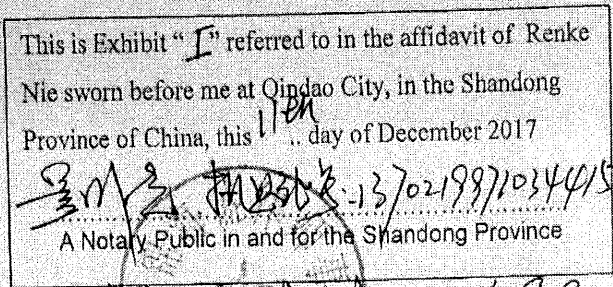 This is Exhibit “I” referred to in the affidavit of Renke
Nie sworn before me at Qindao City, in the Shandong
Province of China, this 11th .. day of December 2017
13702199710344415
A Notary Public in and for the Shandong Province